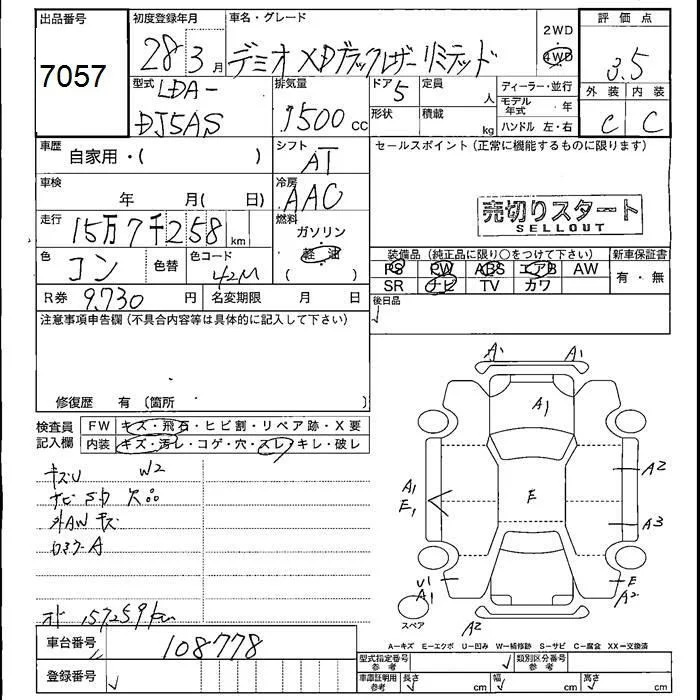 出品番号
7057
初度登録年月
28 3月
車名・グレード
デミオ XDブラックレザーリミテッド
2WD
4WD
評価点
3.5
外装 内装
C C
型式
LDA-
DJ5AS
排気量
1500 cc
ドア
5
形状
定員
人
積載
kg
ディーラー・並行
モデル年式 年
ハンドル 左・右
車歴
自家用・( )
シフト
AT
セールスポイント(正常に機能するものに限ります)
車検
年 月( 日)
冷房
AAC
売切りスタート
SELLOUT
走行
15万7千258km
燃料
ガソリン
軽油
( )
色
コン
色替
色コード
42M
装備品(純正品に限り○をつけて下さい)
新車保証書
PS PW ABS エアB AW
SR ナビ TV カワ
有・無
R券 9,730 円
名変期限 月 日
後日品
注意事項申告欄(不具合内容等は具体的に記入して下さい)
修復歴 有(箇所 )
検査員
記入欄
FW キズ・飛石・ヒビ割・リペア跡・X要
内装 キズ・汚レ・コゲ・穴・スレ・キレ・破レ
キズU W2
ナビSD欠
外AWキズ
ロスワーA
オド 157259km
車台番号
108778
登録番号
A1 A1
A1
A1
E1
E
A2
A3
U1
A1
E
A2
A2
スペア
A-キズ E-エクボ U-凹み W-補修跡 S-サビ C-腐食 XX-交換済
型式指定番号
参考
類別区分番号
参考
車庫証明用
参考
長さ cm
幅 cm
高さ cm